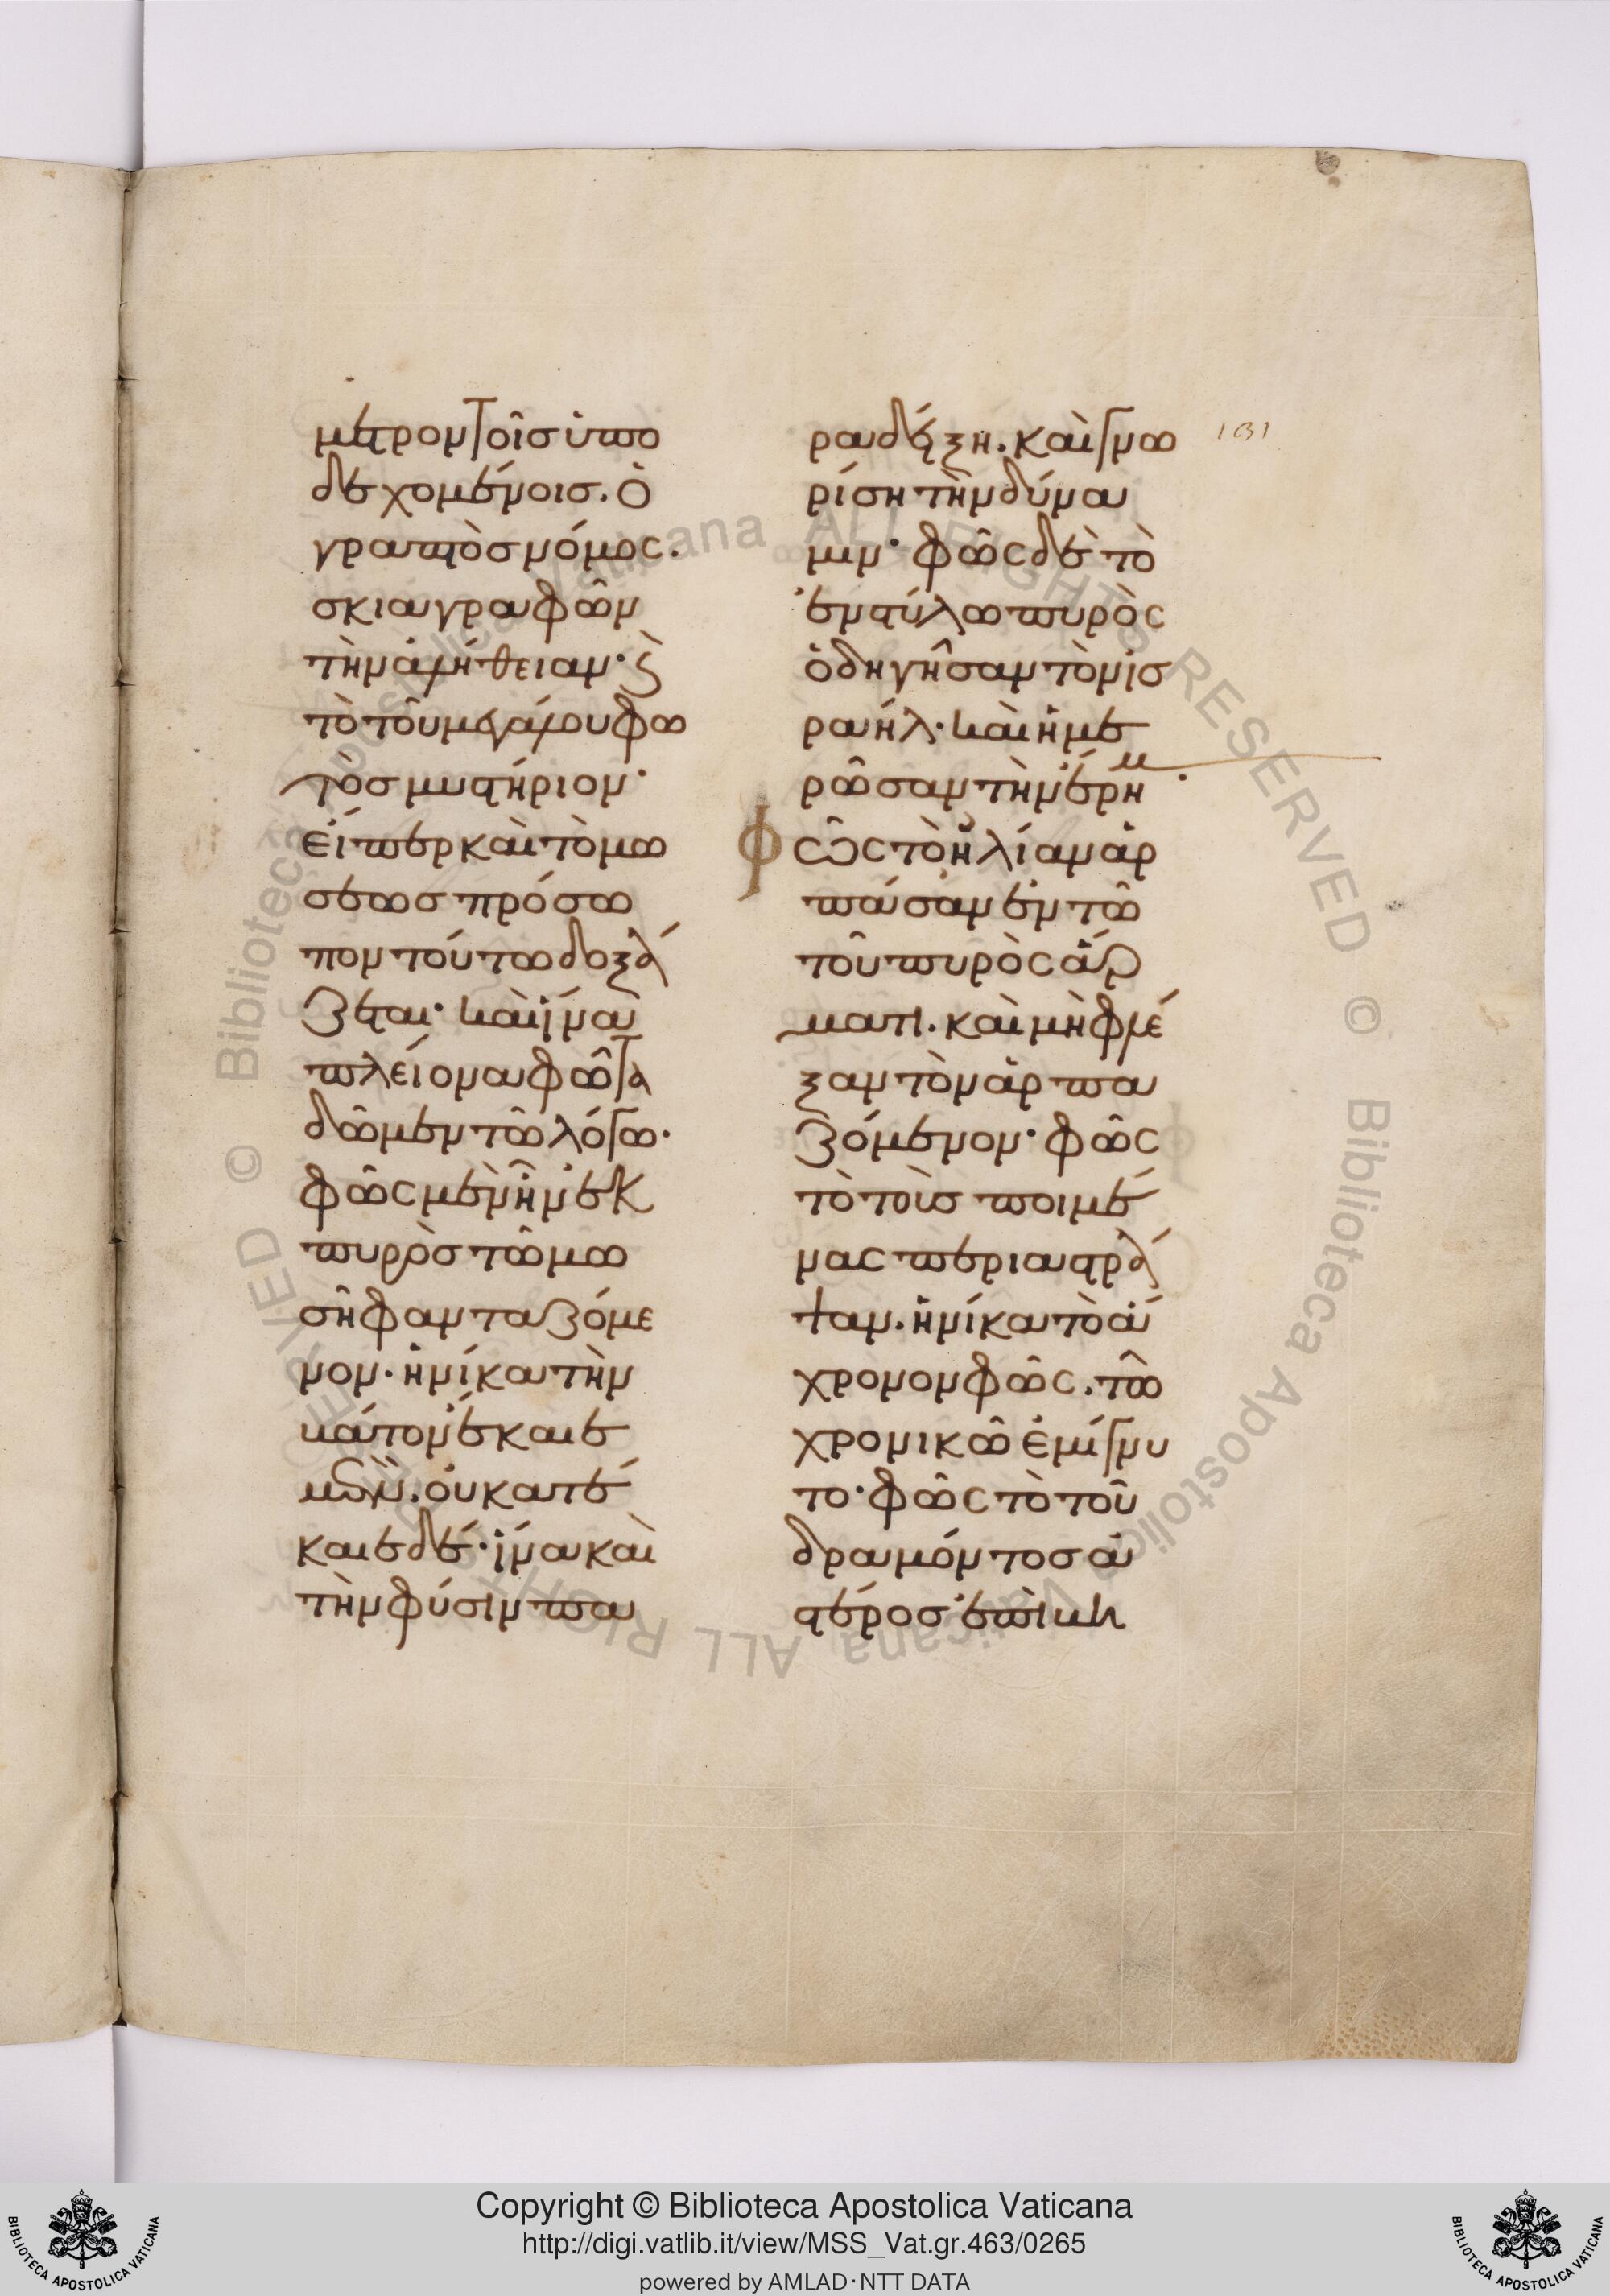 μετρον τοῖσ ὑπο
δεχομένοισ. ὁ
γραπτὸσ νόμος.
σκιαγραφῶν
τὴν ἀλήθειαν· ϗ
τὸ τοῦ μεγάλου φω
τὸσ μυστήριον·
εἴπερ καὶ τὸ μω
σέωσ πρόσω
πον τούτω δοξά
ζεται· καὶ ἵνα
πλείονα φῶτα
δῶμεν τῶ λόγω·
φῶς μὲν ἦν ἐκ
πυρὸσ τῶ μω
σῆ φανταζόμε
νον. ἡνίκα τὴν
βάτον ἔκαιε
μὲν. οὐ κατέ
καιε δέ· ἵνα καὶ
τὴν φύσιν πα
ραδείξη. καὶ γνω
ρίση τὴν δύνα
μιν· φῶς δὲ τὸ
ἐν στύλω πυρὸς
ὁδηγῆσαν τὸν ἰσ
ραήλ. καὶ ἡμε
ρῶσαν τὴν ἔρημ
φῶς τὸ ἠλίαν ἁρ
πάσαν ἐν τῶ
τοῦ πυρὸς ἅρ
ματι. καὶ μὴ φλέ
ξαν τὸν ἁρπα
ζόμενον· φῶς
τὸ τοὺσ ποιμέ
νας περιαστρά
ψαν. ἡνίκα τὸ ἄ
χρονον φῶς. τῶ
χρονικῶ ἐμίγνυ
το· φῶς τὸ τοῦ
δραμόντοσ ἀ
στέροσ ἐπὶ βη
131
Copyright © Biblioteca Apostolica Vaticana
http://digi.vatlib.it/view/MSS_Vat.gr.463/0265
powered by AMLAD·NTT DATA